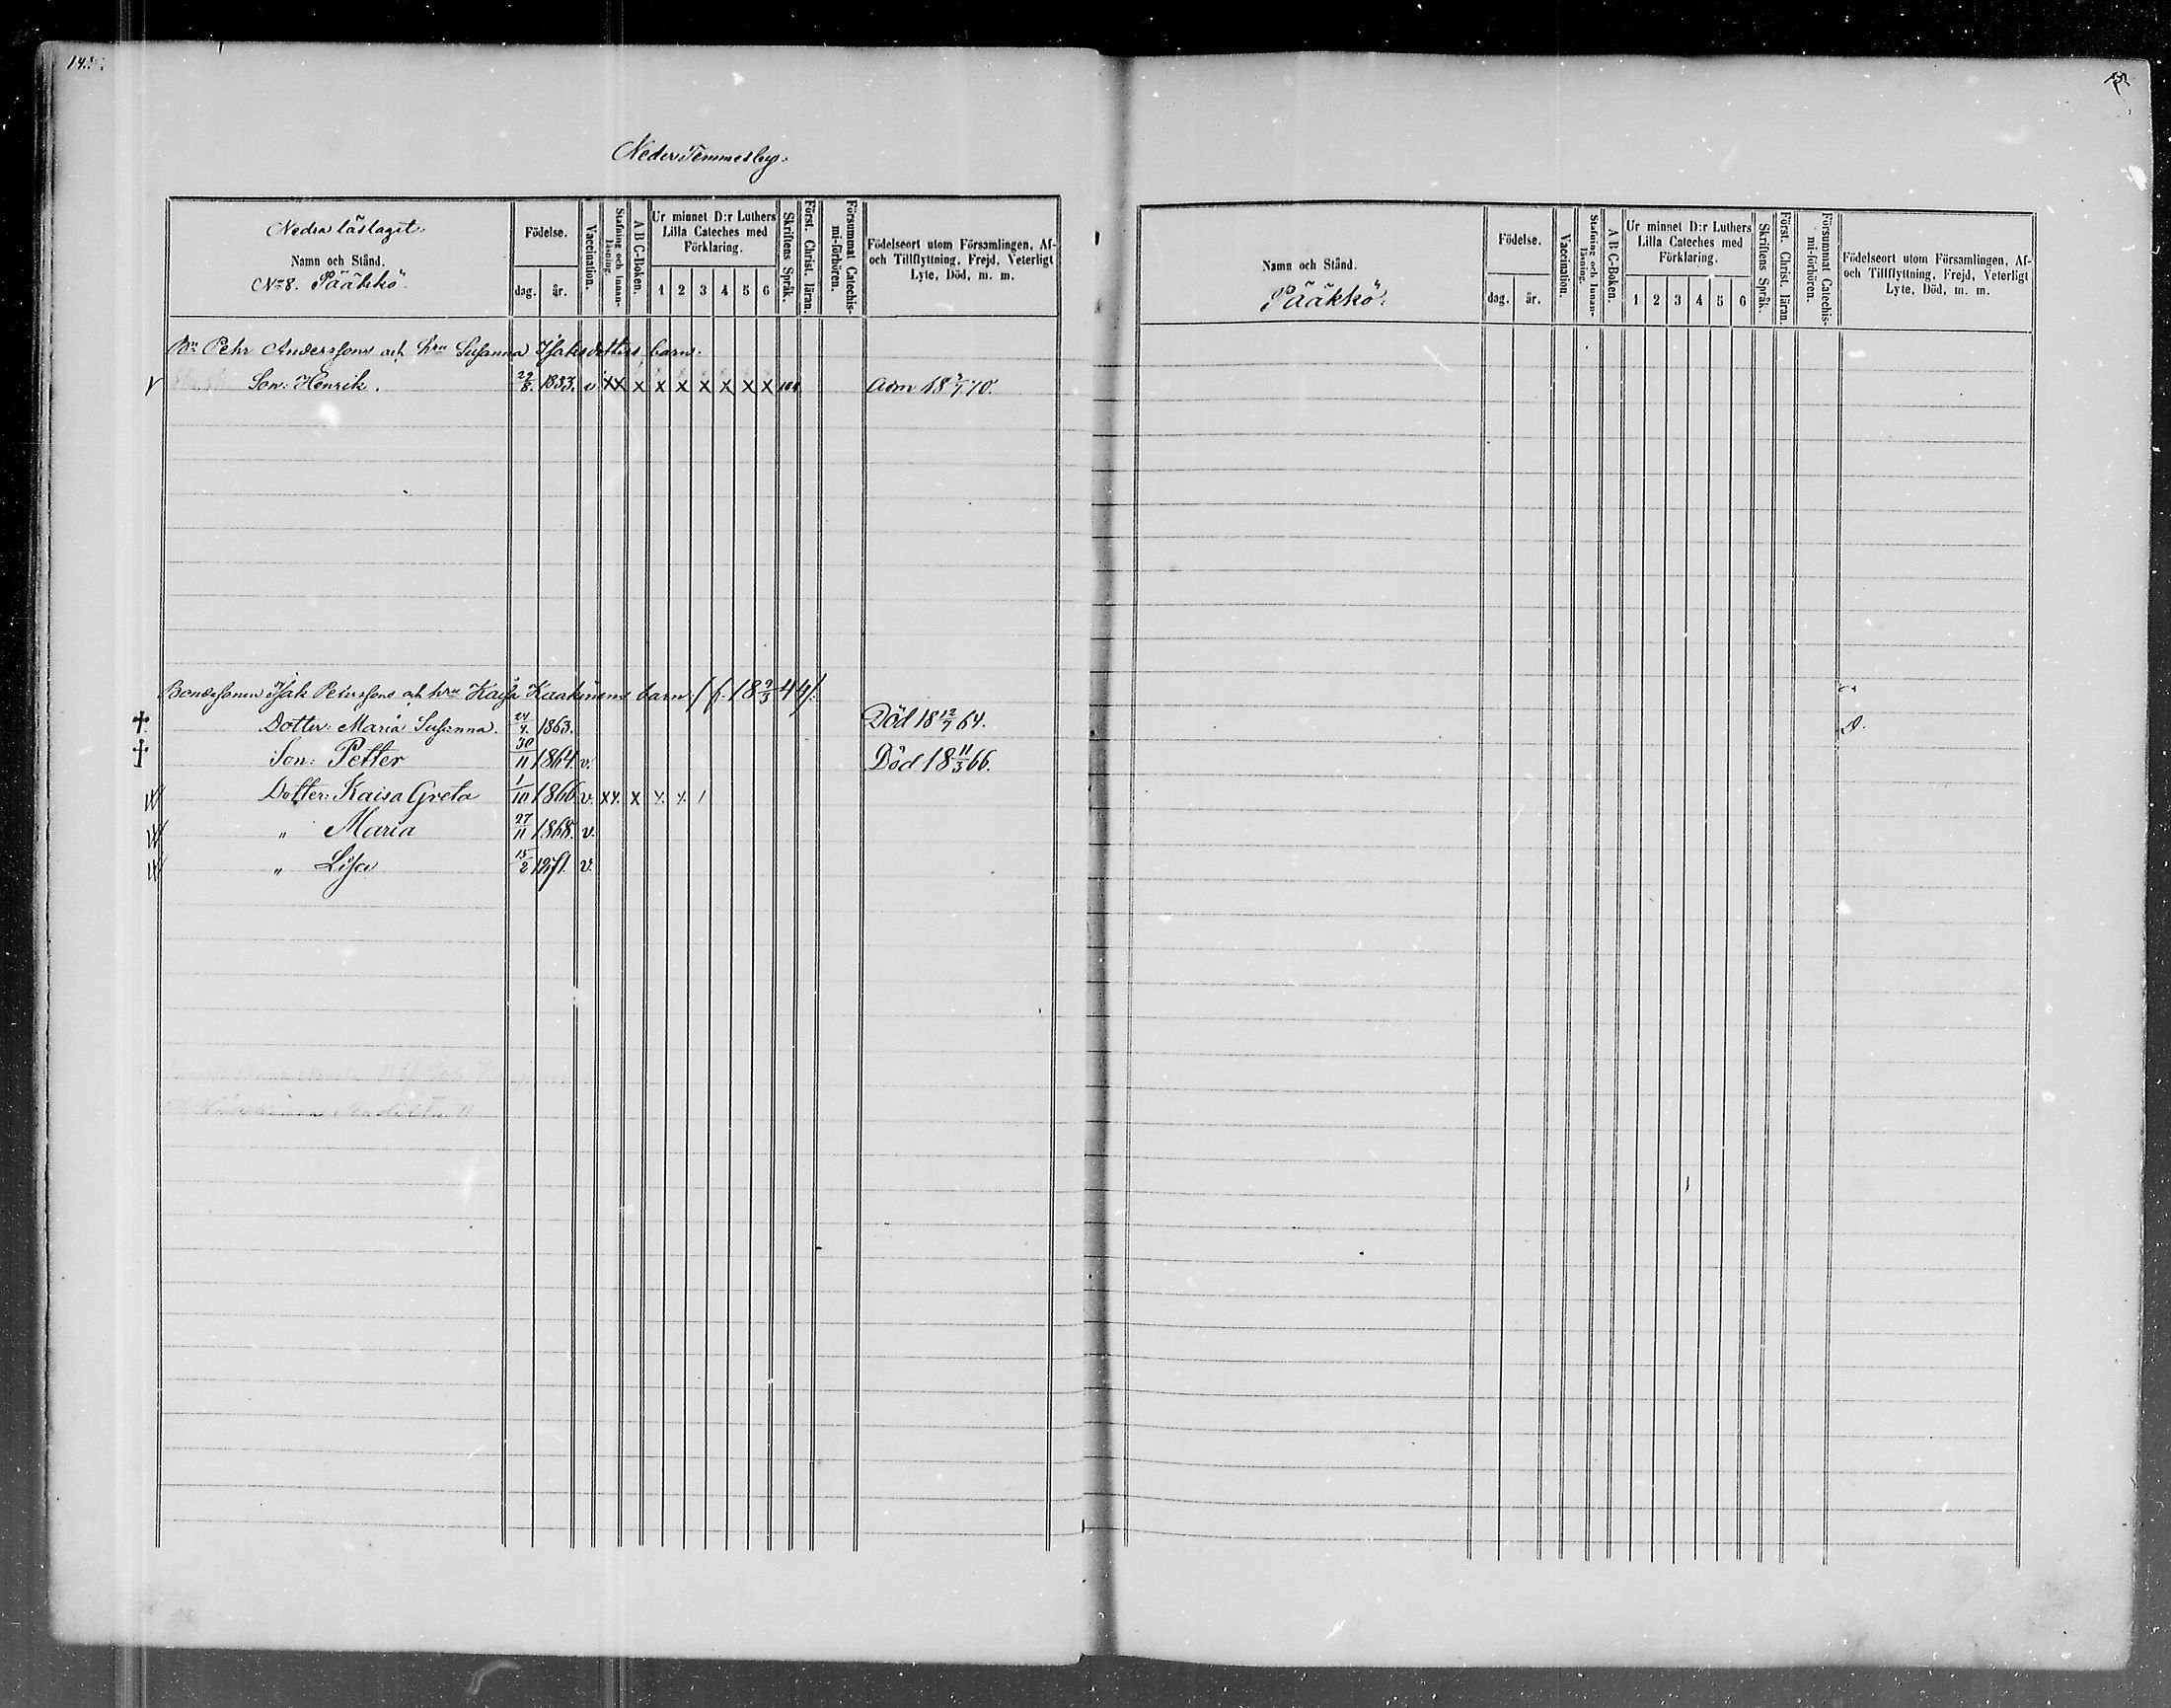 14.
Neder Temmesby.
Nedra läslaget.
Namn och Stånd.
No 8. Pääkkö.
Födelse.
dag. år.
Vaccination.
Stafning och Innanläsning.
A B C-Boken.
Ur minnet D:r Luthers Lilla Cateches med Förklaring.
1 2 3 4 5 6
Skriftens Språk.
Först. Christ. läran.
Försummat Catechismi-förhören.
Födelseort utom Församlingen, Af- och Tillflyttning, Frejd, Veterligt Lyte, Död, m. m.
Bn Pehr Anderssons och hru Susanna Isaksdotters barn.
Son: Henrik. 29/8. 1833. v xx x x x x x x x Adm 18 /7 70.
Bondesonen Isak Peterssons och hru Kaisa Kaakinens barn /: f. 18 2/3 44 :/
† Dotter: Maria Susanna. 24/4. 1863. Död 18 12/7 64.
† Son: Petter 30/11 1864. v. Död 18 11/3 66.
Dotter: Kaisa Greta 1/10 1866. v. xx. x x x /
„ Maria 27/11 1868. v.
„ Lisa 15/2 1871. v.
Namn och Stånd.
Pääkkö.
Födelse.
dag. år.
Vaccination.
Stafning och Innanläsning.
A B C-Boken.
Ur minnet D:r Luthers Lilla Cateches med Förklaring.
1 2 3 4 5 6
Skriftens Språk.
Först. Christ. läran.
Försummat Catechismi-förhören.
Födelseort utom Församlingen, Af- och Tillflyttning, Frejd, Veterligt Lyte, Död, m. m.